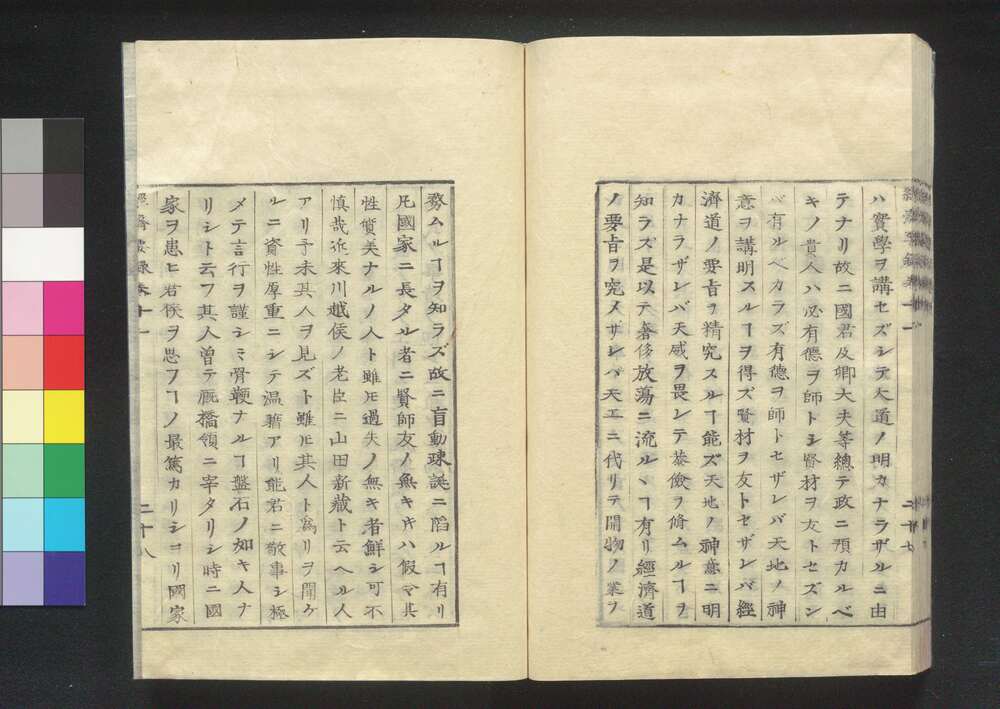 ハ實學ヲ講セズシテ大道ノ明カナラザルニ由
テナリ故ニ國君及卿大夫等總テ政ニ預カルベ
キノ貴人ハ必有德ヲ師トシ賢材ヲ友トセズン
バ有ルベカラズ有德ヲ師トセザレバ天地ノ神
意ヲ講明スルヿヲ得ズ賢材ヲ友トセザレバ經
濟道ノ要旨ヲ精究スルヿ能ズ天地ノ神意ニ明
カナラザレバ天威ヲ畏レテ恭儉ヲ脩ムルヿヲ
知ラズ是以テ奢侈放蕩ニ流ルヽヿ有リ經濟道
ノ要旨ヲ究メザレバ天工ニ代リテ開物ノ業ヲ
二十七
務ムルヿヲ知ラズ故ニ盲動疎誕ニ陷ルヿ有リ
凡國家ニ長タル者ニ賢師友ノ無キ𪜈ハ假令其
性質美ナルノ人ト雖𪜈過失ノ無キ者鮮シ可不
慎哉近來川越侯ノ老臣ニ山田新藏ト云ヘル人
アリ予未其人ヲ見ズト雖𪜈其人ト爲リヲ聞ケ
ルニ資性厚重ニシテ溫藉アリ能君ニ敬事シ極
メテ言行ヲ謹シミ骨鞕ナルヿ盤石ノ如キ人ナ
リシト云フ其人曾テ厩橋領ニ宰タリシ時ニ國
家ヲ患ヒ君侯ヲ思フヿノ最篤カリシヨリ國家
經濟要錄卷十一
二十八